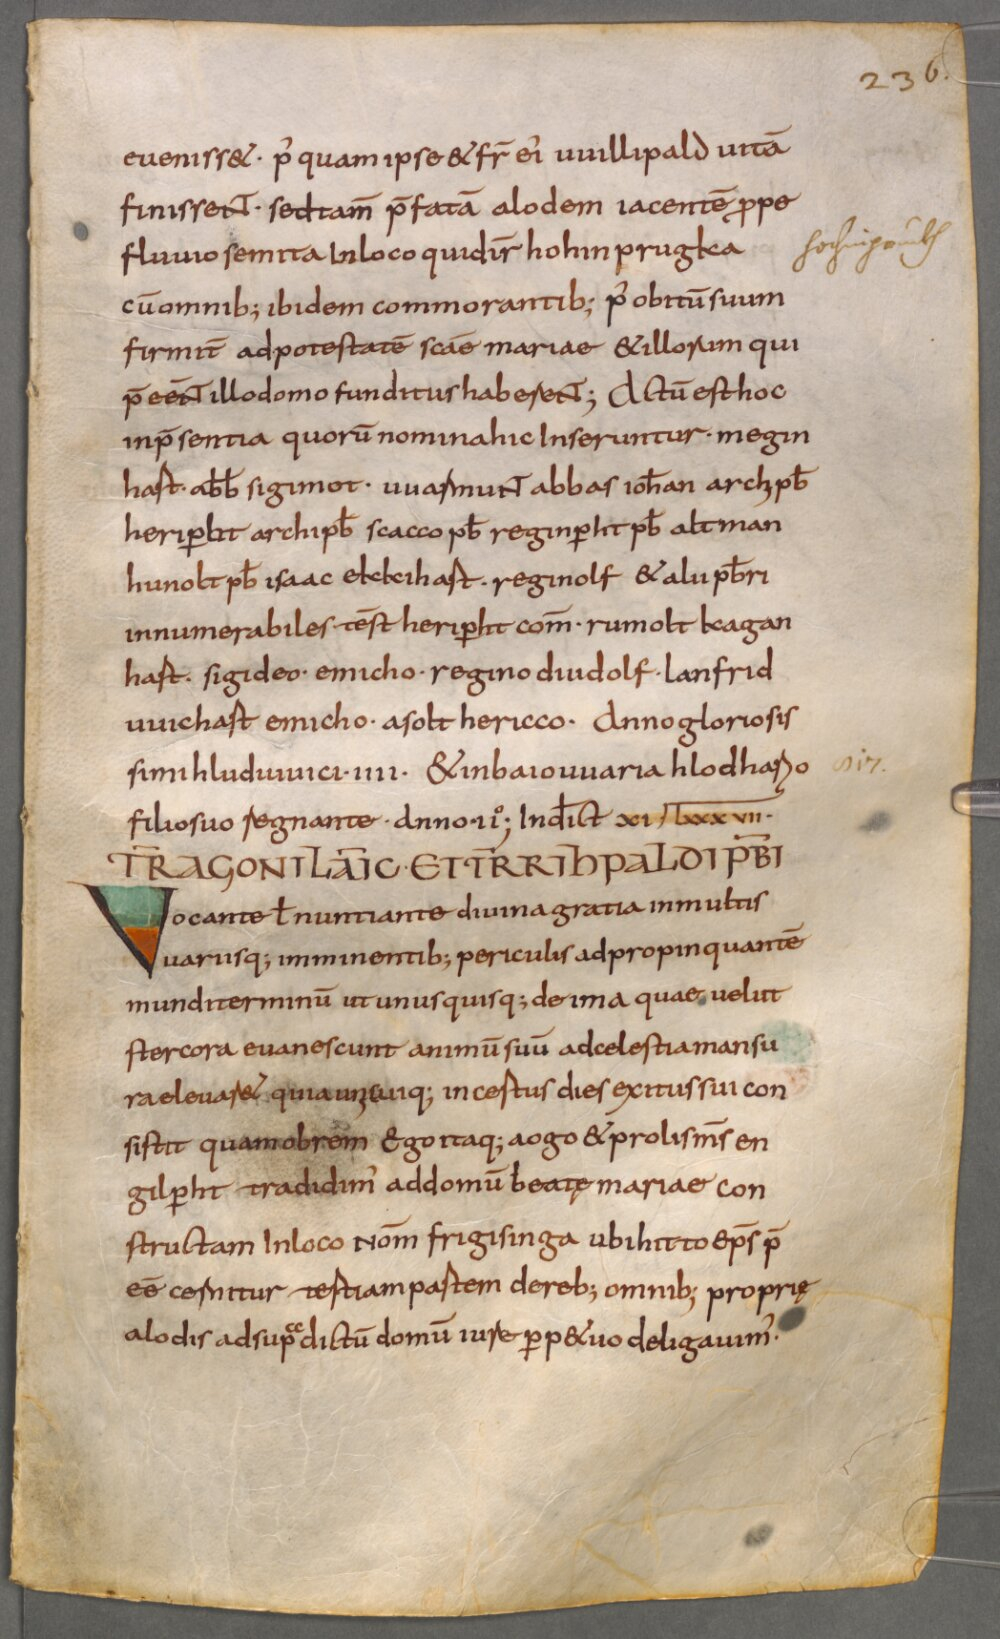 236.
euenisset · p' quam ipse & fr̄ ei' uuillipald uitā
finissent · sed tam̄ p̄fatā alodem iacentē ꝓpe
fluuio semita In loco qui dir̄ hohinprugka
cū omnib; ibidem commorantib; p' obitū suum
firmit̄ ad potestatē scāe mariae & illorum qui
p̄eēnt illo domo funditus haberent; Actū est hoc
in p̄sentia quorū nomina hic Inseruntur · megin
hast · abb̄ sigimot · uuarmunt abbas ioh̄an archp̄b
heripht archip̄b scacco p̄b reginpht p̄b altman
hunolt p̄b isaac ekkihast · reginolf & alii p̄bri
innumerabiles tēst heripht com̄ · rumolt kagan
hast · sigideo · emicho · regino diudolf · lanfrid
uuichast emicho · asolt hericco · Anno gloriosis
simi hluduuuici · IIII · & in baiouuaria hlodhario
filio suo regnante · Anno · II°; Indict̄ XI / LXXXVII ·
T̄RAGONI LĀIC · ET T̄R RIHPALDI PR̄BI
Vocante ł nuntiante diuina gratia in multis
uariisq; imminentib; periculis adpropinquantē
mundi terminū ut unusquisq; de ima quae uelut
stercora euanescunt animū suū ad celestia mansu
ra eleuaret quia unicuiq; incestus dies exitus sui con
sistit quamobrem Ego itaq; aogo & prolis m̄s en
gilpht tradidim' ad domū beatę mariae con
structam In loco Nom̄ frigisinga ubi hitto ep̄s p̄
eē cernitur tertiam partem de reb; omnib; proprię
alodis ad supcedictū domū iure ꝑpetuo deligauim' ·